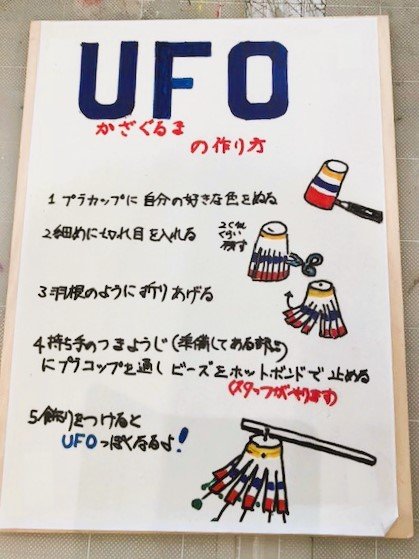 UFO
かざぐるま
の作り方
1 プラカップに自分の好きな色をぬる
2 細めに切れ目を入れる
3 羽根のように折りあげる
4 持ち手のつまようじ(準備してある部品)
にプラコップを通しビーズをホットボンドで止める
(スタッフがやります)
5 飾りをつけると
UFOっぽくなるよ!